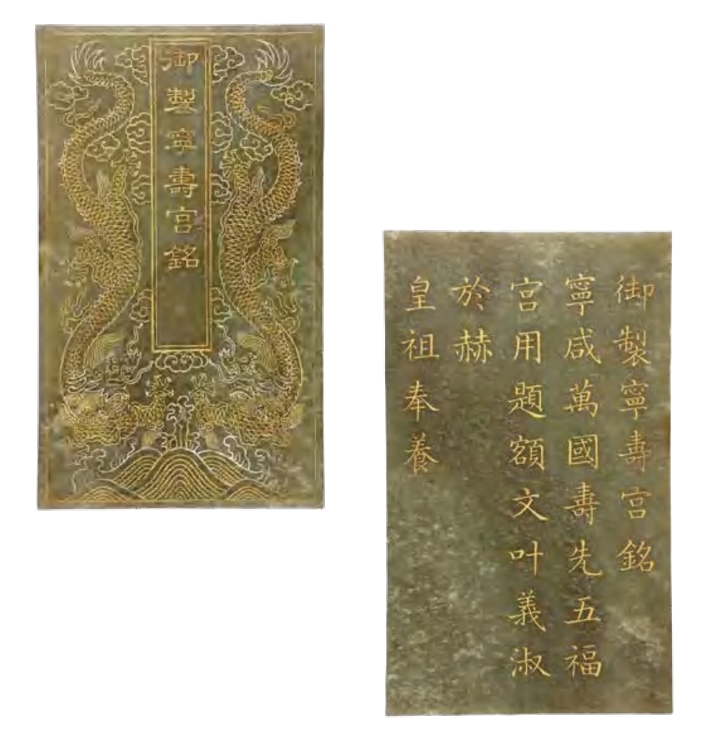 御製寧壽宮銘
御製寧壽宮銘
寧咸萬國壽先五福
宮用題額文叶義淑
於赫
皇祖奉養